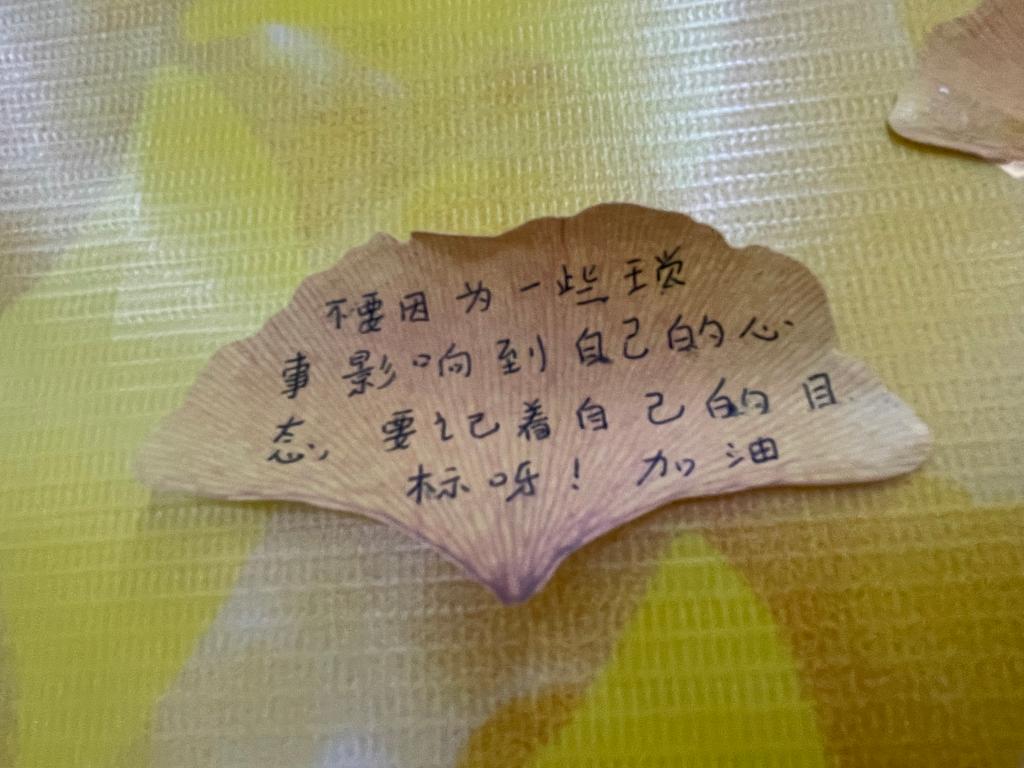 不要因为一些琐
事影响到自己的心
态，要记着自己的目
标呀！加油